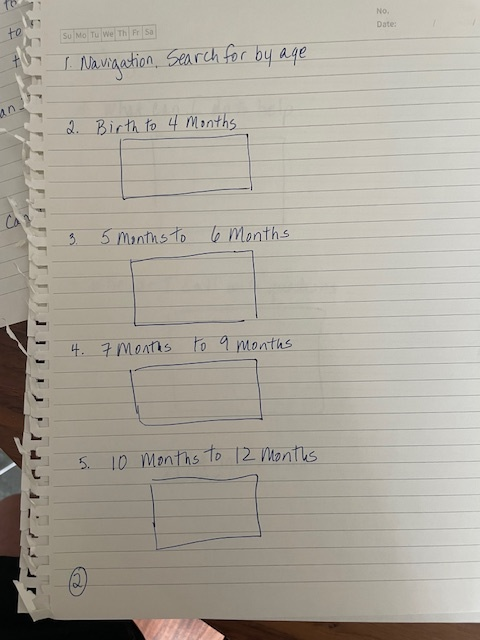 to
to
t
an
Can
No.
Date: / /
Su Mo Tu We Th Fr Sa
1. Navigation, Search for by age
2. Birth to 4 Months
3 5 Months to 6 Months
4. 7 Months to 9 months
5. 10 Months to 12 Months
2